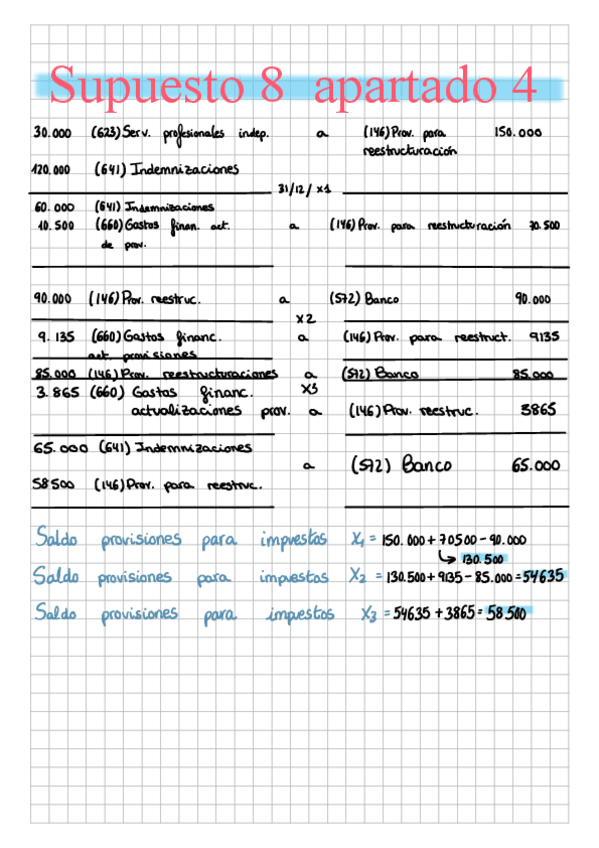 Supuesto 8 apartado 4
30.000 (623) Serv. profesionales indep. a (146) Prov. para 150.000
reestructuración
120.000 (641) Indemnizaciones
31/12/x1
60.000 (641) Indemnizaciones
10.500 (660) Gastos finan. act. a (146) Prov. para reestructuración 70.500
de prov.
90.000 (146) Prov. reestruc. a (572) Banco 90.000
x2
9.135 (660) Gastos financ. a (146) Prov. para reestruct. 9135
act. provisiones
85.000 (146) Prov. reestructuraciones a (572) Banco 85.000
x3
3.865 (660) Gastos financ.
actualizaciones prov. a (146) Prov. reestruc. 3865
65.000 (641) Indemnizaciones
a (572) Banco 65.000
58500 (146) Prov. para reestruc.
Saldo provisiones para impuestos X1 = 150.000 + 70500 - 90.000
↳ 130.500
Saldo provisiones para impuestos X2 = 130.500 + 9135 - 85.000 = 54635
Saldo provisiones para impuestos X3 = 54635 + 3865 = 58.500